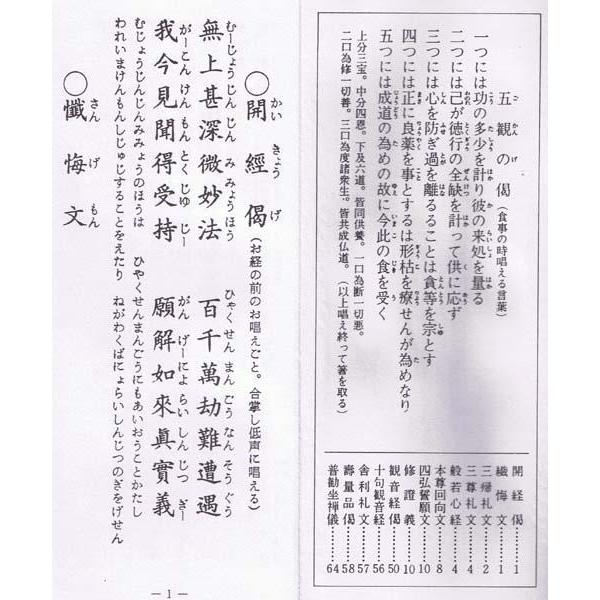 五観の偈(食事の時唱える言葉)
一つには功の多少を計り彼の来処を量る
二つには己が徳行の全缺を計って供に応ず
三つには心を防ぎ過を離るることは貪等を宗とす
四つには正に良薬を事とするは形枯を療せんが為めなり
五つには成道の為めの故に今此の食を受く
上分三宝。中分四恩。下及六道。皆同供養。一口為断一切悪。
二口為修一切善。三口為度諸衆生。皆共成仏道。(以上唱え終って箸を取る)
開経偈……1
懺悔文……1
三帰礼文……2
三尊礼文……4
般若心経……4
本尊回向文……8
四弘誓願文……10
修證義……10
観音経偈……50
十句観音経……56
舎利礼文……57
壽量品偈……58
普勧坐禅儀……64
○開經偈(お経の前のお唱えごと。合掌し低声に唱える)
かいきょうげ
無上甚深微妙法 百千萬劫難遭遇
むーじょうじんじんみみょうほう ひゃくせんまんごうなんそうぐう
我今見聞得受持 願解如來眞實義
がーこんけんもんとくじゅじー がんげーにょらいしんじつぎー
むじょうじんじんみみょうのほうは ひゃくせんまんごうにもあいおうことかたし
われいまけんもんしじゅじすることをえたり ねがわくばにょらいしんじつのぎをげせん
○懺悔文
さんげもん
—1—